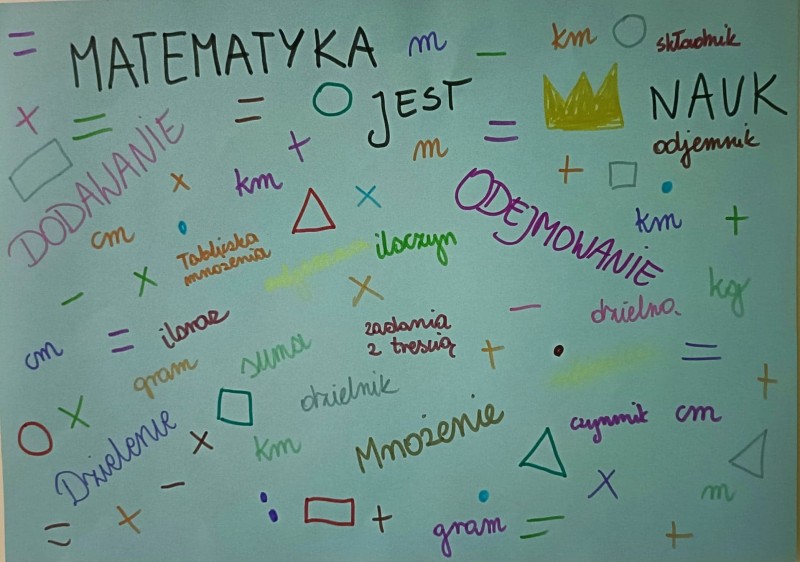 = MATEMATYKA m — km składnik
+ = = JEST = NAUK
DODAWANIE + m odjemnik
x km x ODEJMOWANIE + km +
cm Tabliczka
mnożenia iloczyn
— x x — dzielna kg
cm = iloraz zadania
z treścią + =
gram suma dzielnik +
x Dzielenie x km Mnożenie czynnik cm
— x m
= + : + gram = +